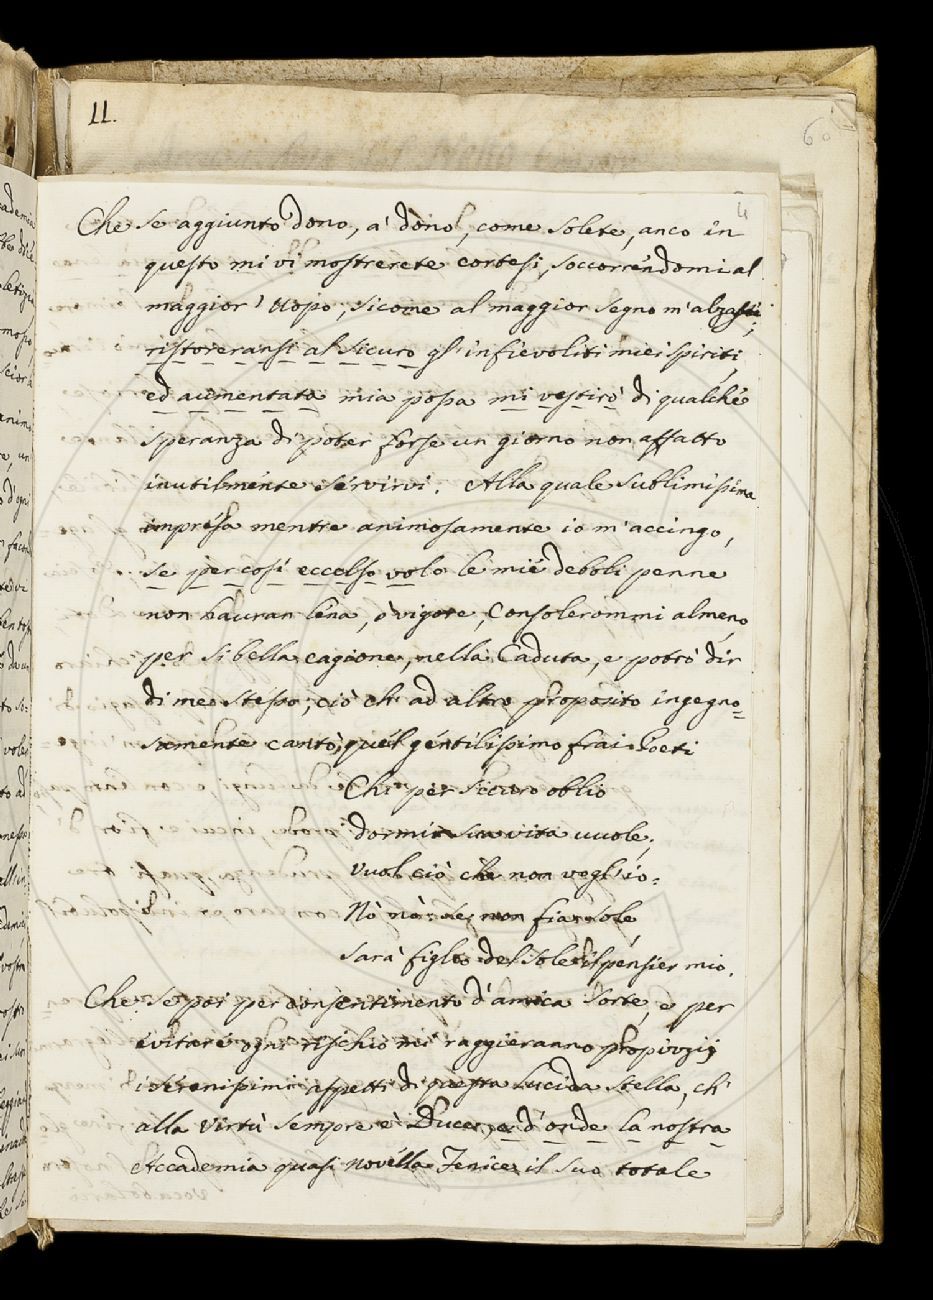 11.
60
4
Che se aggiunto dono, a' dono, come solete, anco in
questo mi vi mostrerete cortesi, soccorrendomi al
maggior' uopo; sicome al maggior segno m'alzasti;
ristoreransi al sicuro gl'infievoliti miei spiriti,
ed aumentata mia possa mi vestirò di qualche
speranza di poter forse un giorno non affatto
inutilmente servirvi. Alla quale sublimissima
impresa mentre animosamente io m'accingo,
se per così eccelso volo le mie deboli penne
non hauran lena, ò vigore, Consolerommi almeno,
per si bella cagione, nella Caduta, e potrò dir
di me stesso, ciò ch' ad altro proposito ingegno=
samente cantò, quel gentilissimo frai Poeti
Chi per sicuro oblio
dormir sua vita vuole,
vuol ciò che non vegl'io:
Nò nò se non fia sole,
Sarà figlio del Sole il pensier mio.
Che se poi per consentimento d'amica Sorte, e per
evitare ogni rischio mi raggieranno propizij
i serenissimi aspetti di questa lucida stella, ch'
alla Virtù sempre è Duce, e d'onde la nostra
Accademia quasi novella Fenice il suo totale